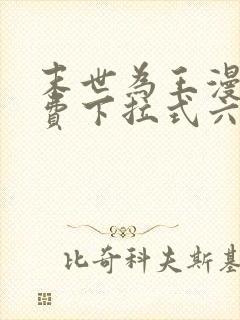 末世為王漫
費下拉式六
比奇科夫斯基